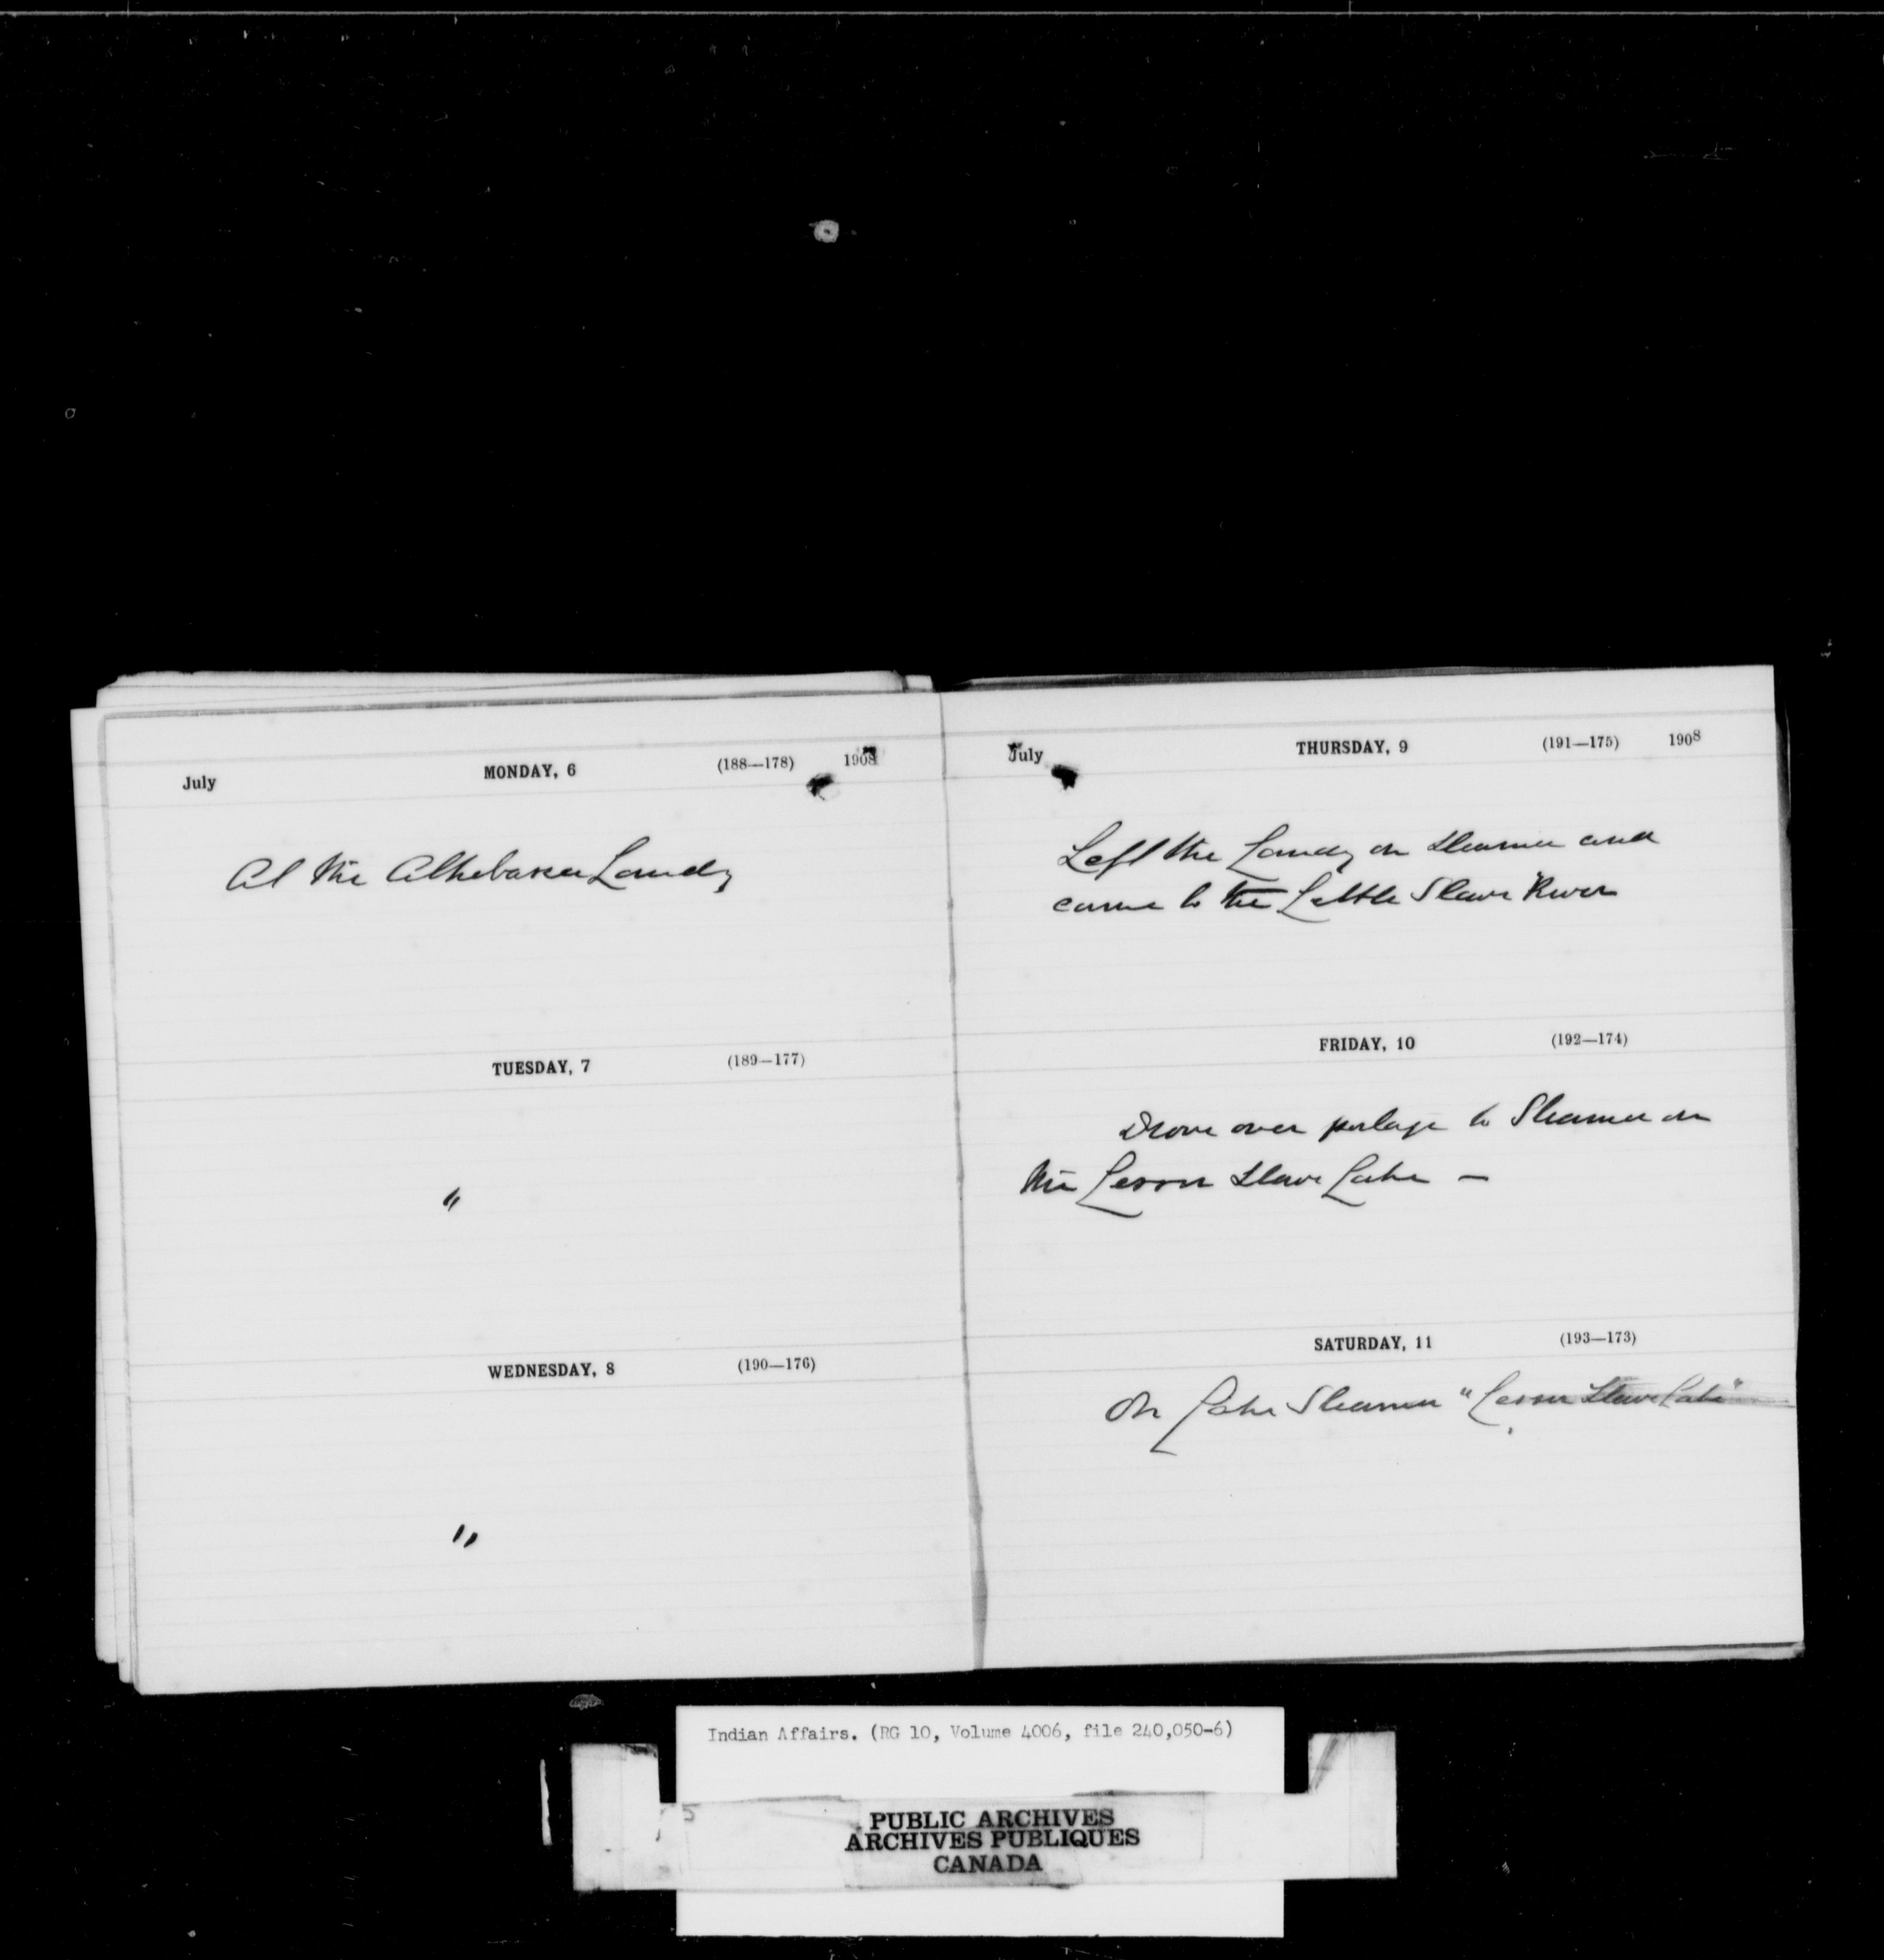 July MONDAY, 6 (188—178) 1908
At the Athabasca Landg
TUESDAY, 7 (189—177)
"
WEDNESDAY, 8 (190—176)
"
July THURSDAY, 9 (191—175) 1908
Left the Landg on steamer and
came to the Little Slave River
FRIDAY, 10 (192—174)
Drove over portage to Steamer on
the Lesser Slave Lake —
SATURDAY, 11 (193—173)
On Lake Steamer "Lesser Slave Lake"
Indian Affairs. (RG 10, Volume 4006, file 240,050-6)
PUBLIC ARCHIVES
ARCHIVES PUBLIQUES
CANADA